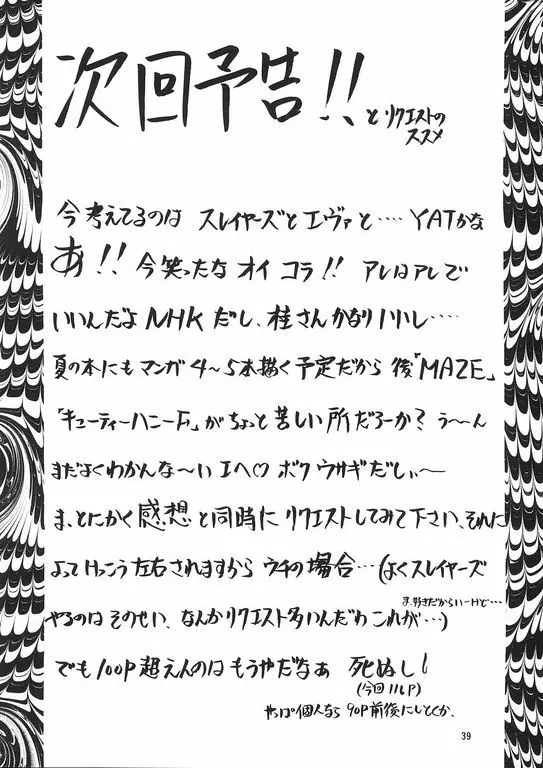 次回予告!! とリクエストのススメ
今考えてるのは スレイヤーズとエヴァと‥‥ YATかな
あ!! 今笑ったな オイ コラ!! アレはアレで
いいんだよ NHKだし、桂さんかなりいいし‥‥
夏の本にもマンガ4〜5本描く予定だから 後「MAZE」
「キューティーハニーF」がちょっと苦しい所だろーか? う〜〜ん
まだよくわかんな〜い エヘ♡ ボク ウサギだしぃ〜
ま、とにかく感想と同時にリクエストしてみて下さい、それに
よってけっこう左右されますから ウチの場合‥‥(よくスレイヤーズ
ま、好きだからいーけど‥‥
やるのは そのせい、なんかリクエスト多いんだわ これが‥‥)
でも100P超えんのは もうやだなぁ 死ぬし!
(今回116P)
やっぱ個人なら 90P前後にしとくか、
39